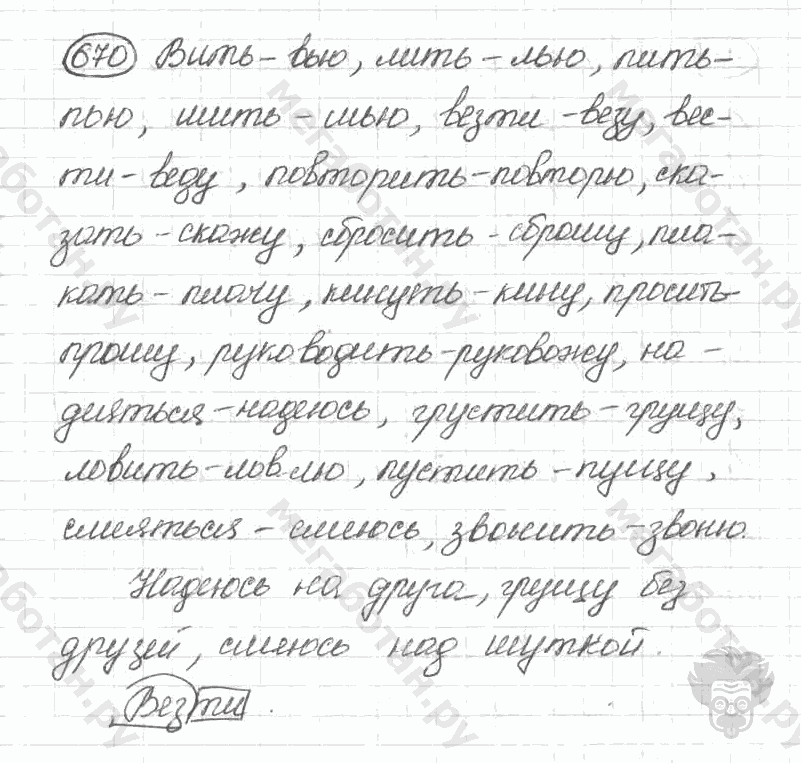 670 Вить - вью, лить - лью, пить -
пью, шить - шью, везти - везу, вес-
ти - веду, повторить - повторю, ска-
зать - скажу, сбросить - сброшу, пла-
кать - плачу, кинуть - кину, просить -
прошу, руководить - руковожу, на -
деяться - надеюсь, грустить - грущу,
ловить - ловлю, пустить - пущу,
смеяться - смеюсь, звонить - звоню.
Надеюсь на друга, грущу без
друзей, смеюсь над шуткой.
Везти.
мегаботан.ру